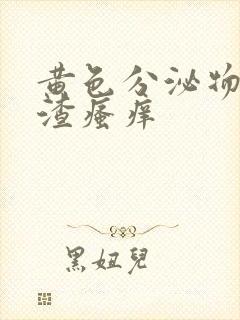 黄色分泌物
渣瘙痒
黑妞兒